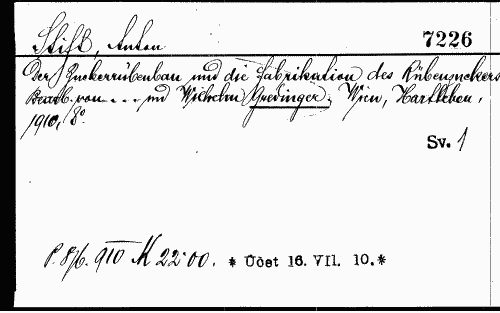 Stift, Anton
7226
Der Zuckerrübenbau und die Fabrikation des Rübenzuckers
Bearb. von . . . und Wilhelm Gredinger, Wien, Hartleben,
1910, 8°
Sv. 1
P. 8/6. 910 M 22·00. * Účet 16. VII. 10.*